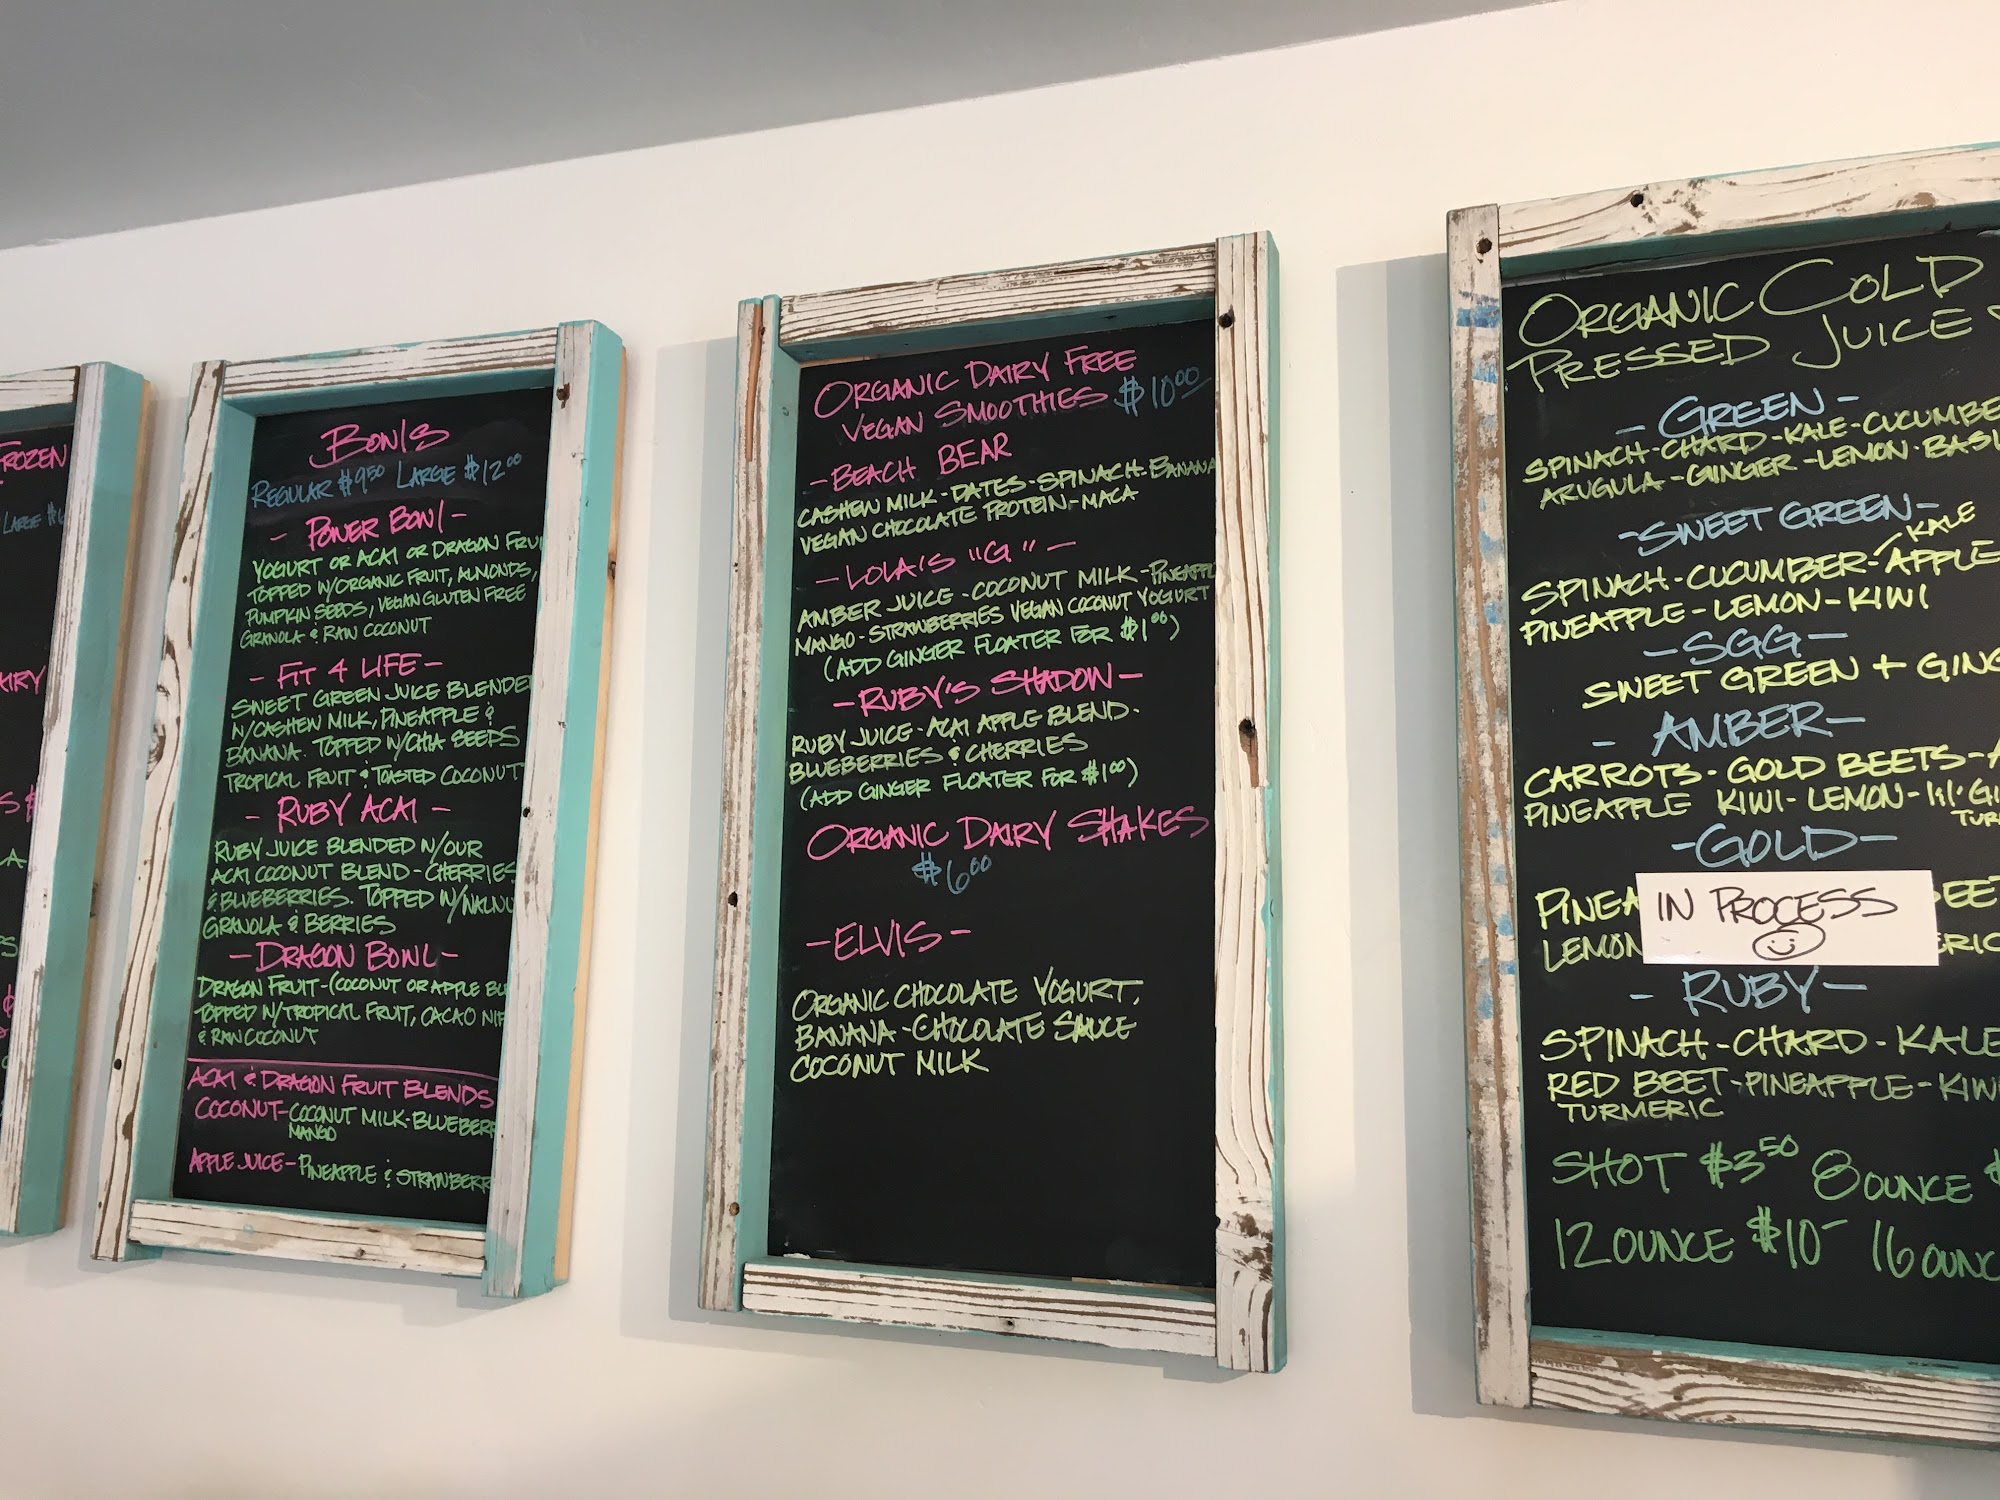 FROZEN
LARGE $6
AIRY
BOWLS
REGULAR $9.50 LARGE $12.00
- POWER BOWL -
YOGURT OR ACAI OR DRAGON FRUI
TOPPED W/ORGANIC FRUIT, ALMONDS,
PUMPKIN SEEDS, VEGAN GLUTEN FREE
GRANOLA & RAW COCONUT
- FIT 4 LIFE -
SWEET GREEN JUICE BLENDED
W/CASHEW MILK, PINEAPPLE &
BANANA. TOPPED W/CHIA SEEDS
TROPICAL FRUIT & TOASTED COCONUT
- RUBY ACAI -
RUBY JUICE BLENDED W/OUR
ACAI COCONUT BLEND - CHERRIES
& BLUEBERRIES. TOPPED W/WALNU
GRANOLA & BERRIES
- DRAGON BOWL -
DRAGON FRUIT - (COCONUT OR APPLE BL
TOPPED W/TROPICAL FRUIT, CACAO NI
& RAW COCONUT
ACAI & DRAGON FRUIT BLENDS
COCONUT - COCONUT MILK - BLUEBERR
MANGO
APPLE JUICE - PINEAPPLE & STRAWBERR
ORGANIC DAIRY FREE
VEGAN SMOOTHIES $10.00
- BEACH BEAR
CASHEW MILK - DATES - SPINACH - BANANA
VEGAN CHOCOLATE PROTEIN - MACA
- LOLA'S "G" -
AMBER JUICE - COCONUT MILK - PINEAPPL
MANGO - STRAWBERRIES VEGAN COCONUT YOGURT
(ADD GINGER FLOATER FOR $1.00)
- RUBY'S SHADOW -
RUBY JUICE - ACAI APPLE BLEND -
BLUEBERRIES & CHERRIES
(ADD GINGER FLOATER FOR $1.00)
ORGANIC DAIRY SHAKES
$6.00
- ELVIS -
ORGANIC CHOCOLATE YOGURT,
BANANA - CHOCOLATE SAUCE
COCONUT MILK
ORGANIC COLD
PRESSED JUICE
- GREEN -
SPINACH - CHARD - KALE - CUCUMBE
ARUGULA - GINGER - LEMON - BASI
- SWEET GREEN -
KALE
SPINACH - CUCUMBER - APPLE
PINEAPPLE - LEMON - KIWI
- SGG -
SWEET GREEN + GING
- AMBER -
CARROTS - GOLD BEETS - A
PINEAPPLE KIWI - LEMON - GI
TUR
- GOLD -
PINEA IN PROCESS BEET
LEMON ERIC
- RUBY -
SPINACH - CHARD - KALE
RED BEET - PINEAPPLE - KIW
TURMERIC
SHOT $3.50 8 OUNCE $
12 OUNCE $10- 16 OUNC